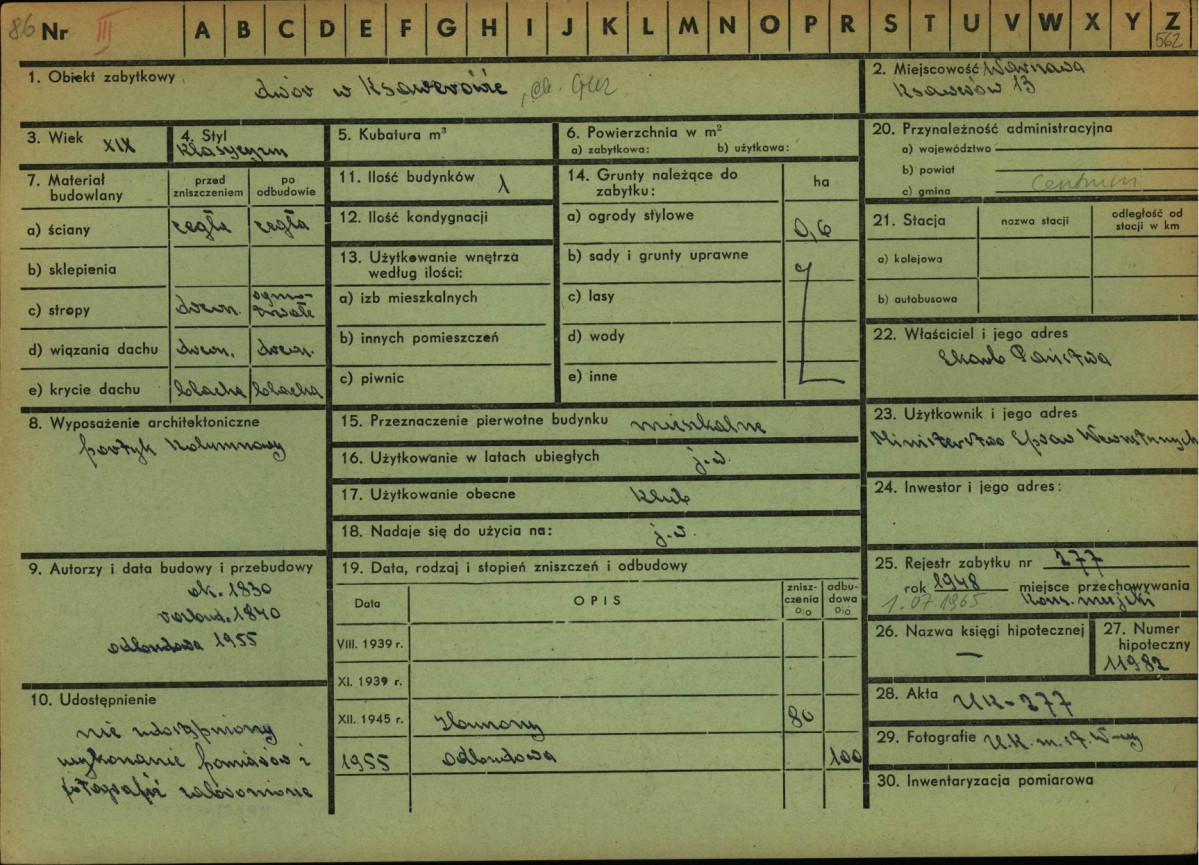 86 Nr III A B C D E F G H I J K L M N O P R S T U V W X Y Z
562
1. Obiekt zabytkowy dwór w Ksawerowie
2. Miejscowość Warszawa
Ksawerów 13
3. Wiek XIX
4. Styl klasycyzm
5. Kubatura m³
6. Powierzchnia w m²
a) zabytkowa: b) użytkowa:
20. Przynależność administracyjna
a) województwo
b) powiat
c) gmina Centrum
7. Materiał budowlany
przed zniszczeniem
po odbudowie
a) ściany cegła cegła
b) sklepienia
c) stropy drewn. ognio-
trwałe
d) wiązania dachu drewn. drewn.
e) krycie dachu blacha blacha
11. Ilość budynków 1
12. Ilość kondygnacji
13. Użytkowanie wnętrza
według ilości:
a) izb mieszkalnych
b) innych pomieszczeń
c) piwnic
14. Grunty należące do
zabytku: ha
a) ogrody stylowe 0,6
b) sady i grunty uprawne
c) lasy
d) wody
e) inne
21. Stacja nazwa stacji odległość od
stacji w km
a) kolejowa
b) autobusowa
22. Właściciel i jego adres
Skarb Państwa
8. Wyposażenie architektoniczne
portyk kolumnowy
15. Przeznaczenie pierwotne budynku mieszkalne
16. Użytkowanie w latach ubiegłych j.w.
17. Użytkowanie obecne klub
18. Nadaje się do użycia na: j.w.
23. Użytkownik i jego adres
Ministerstwo Spraw Wewnętrznych
24. Inwestor i jego adres:
9. Autorzy i data budowy i przebudowy
ok. 1830
rozbud. 1840
odbudowa 1955
19. Data, rodzaj i stopień zniszczeń i odbudowy
Data OPIS znisz-
czenia
o|o odbu-
dowa
o|o
VIII. 1939 r.
XI. 1939 r.
XII. 1945 r. 80
1955 odbudowa 100
25. Rejestr zabytku nr 277
rok 1948 miejsce przechowywania
1.07.1965 Kons. miejski
26. Nazwa księgi hipotecznej —
27. Numer
hipoteczny
11982
10. Udostępnienie
nie udostępniony
wykonanie pomiarów i
fotografii zabronione
28. Akta UK-277
29. Fotografie U.K. m. st. W-wy
30. Inwentaryzacja pomiarowa